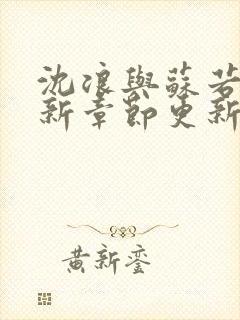 沈浪與蘇若
新章節更新
黃新鑾